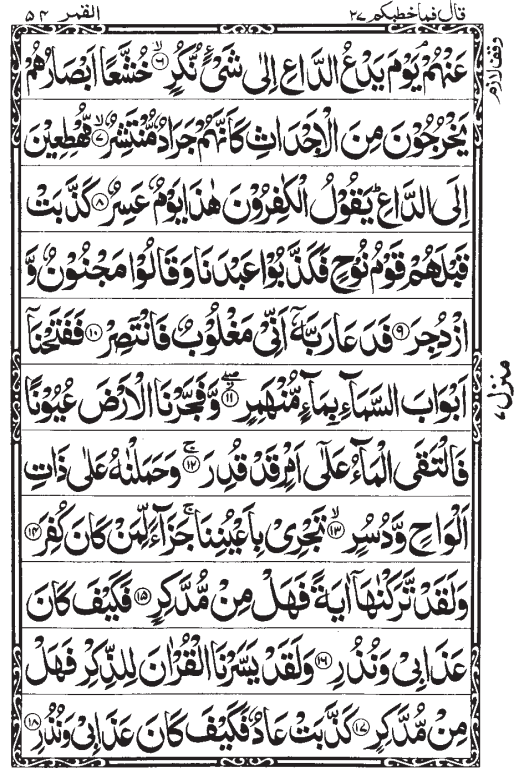 قال فما خطبكم ٢٧
القمر ٥٤
عَنْهُمْ ۘ يَوْمَ يَدْعُ الدَّاعِ اِلٰى شَىْءٍ نُّكُرٍ ۙ﴿۶﴾ خُشَّعًا اَبْصَارُهُمْ
يَخْرُجُوْنَ مِنَ الْاَجْدَاثِ كَاَنَّهُمْ جَرَادٌ مُّنْتَشِرٌ ۙ﴿۷﴾ مُّهْطِعِيْنَ
اِلَى الدَّاعِ ؕ يَقُوْلُ الْكٰفِرُوْنَ هٰذَا يَوْمٌ عَسِرٌ ﴿۸﴾ كَذَّبَتْ
قَبْلَهُمْ قَوْمُ نُوْحٍ فَكَذَّبُوْا عَبْدَنَا وَ قَالُوْا مَجْنُوْنٌ وَّ
ازْدُجِرَ ﴿۹﴾ فَدَعَا رَبَّهٗۤ اَنِّىْ مَغْلُوْبٌ فَانْتَصِرْ ﴿۱۰﴾ فَفَتَحْنَاۤ
اَبْوَابَ السَّمَآءِ بِمَآءٍ مُّنْهَمِرٍ ۖ﴿۱۱﴾ وَّ فَجَّرْنَا الْاَرْضَ عُيُوْنًا
فَالْتَقَى الْمَآءُ عَلٰٓى اَمْرٍ قَدْ قُدِرَ ۚ﴿۱۲﴾ وَ حَمَلْنٰهُ عَلٰى ذَاتِ
اَلْوَاحٍ وَّ دُسُرٍ ۙ﴿۱۳﴾ تَجْرِىْ بِاَعْيُنِنَا ۚ جَزَآءً لِّمَنْ كَانَ كُفِرَ ﴿۱۴﴾
وَ لَقَدْ تَّرَكْنٰهَاۤ اٰيَةً فَهَلْ مِنْ مُّدَّكِرٍ ﴿۱۵﴾ فَكَيْفَ كَانَ
عَذَابِىْ وَ نُذُرِ ﴿۱۶﴾ وَ لَقَدْ يَسَّرْنَا الْقُرْاٰنَ لِلذِّكْرِ فَهَلْ
مِنْ مُّدَّكِرٍ ﴿۱۷﴾ كَذَّبَتْ عَادٌ فَكَيْفَ كَانَ عَذَابِىْ وَ نُذُرِ ﴿۱۸﴾
وقف لازم
منزل ٧